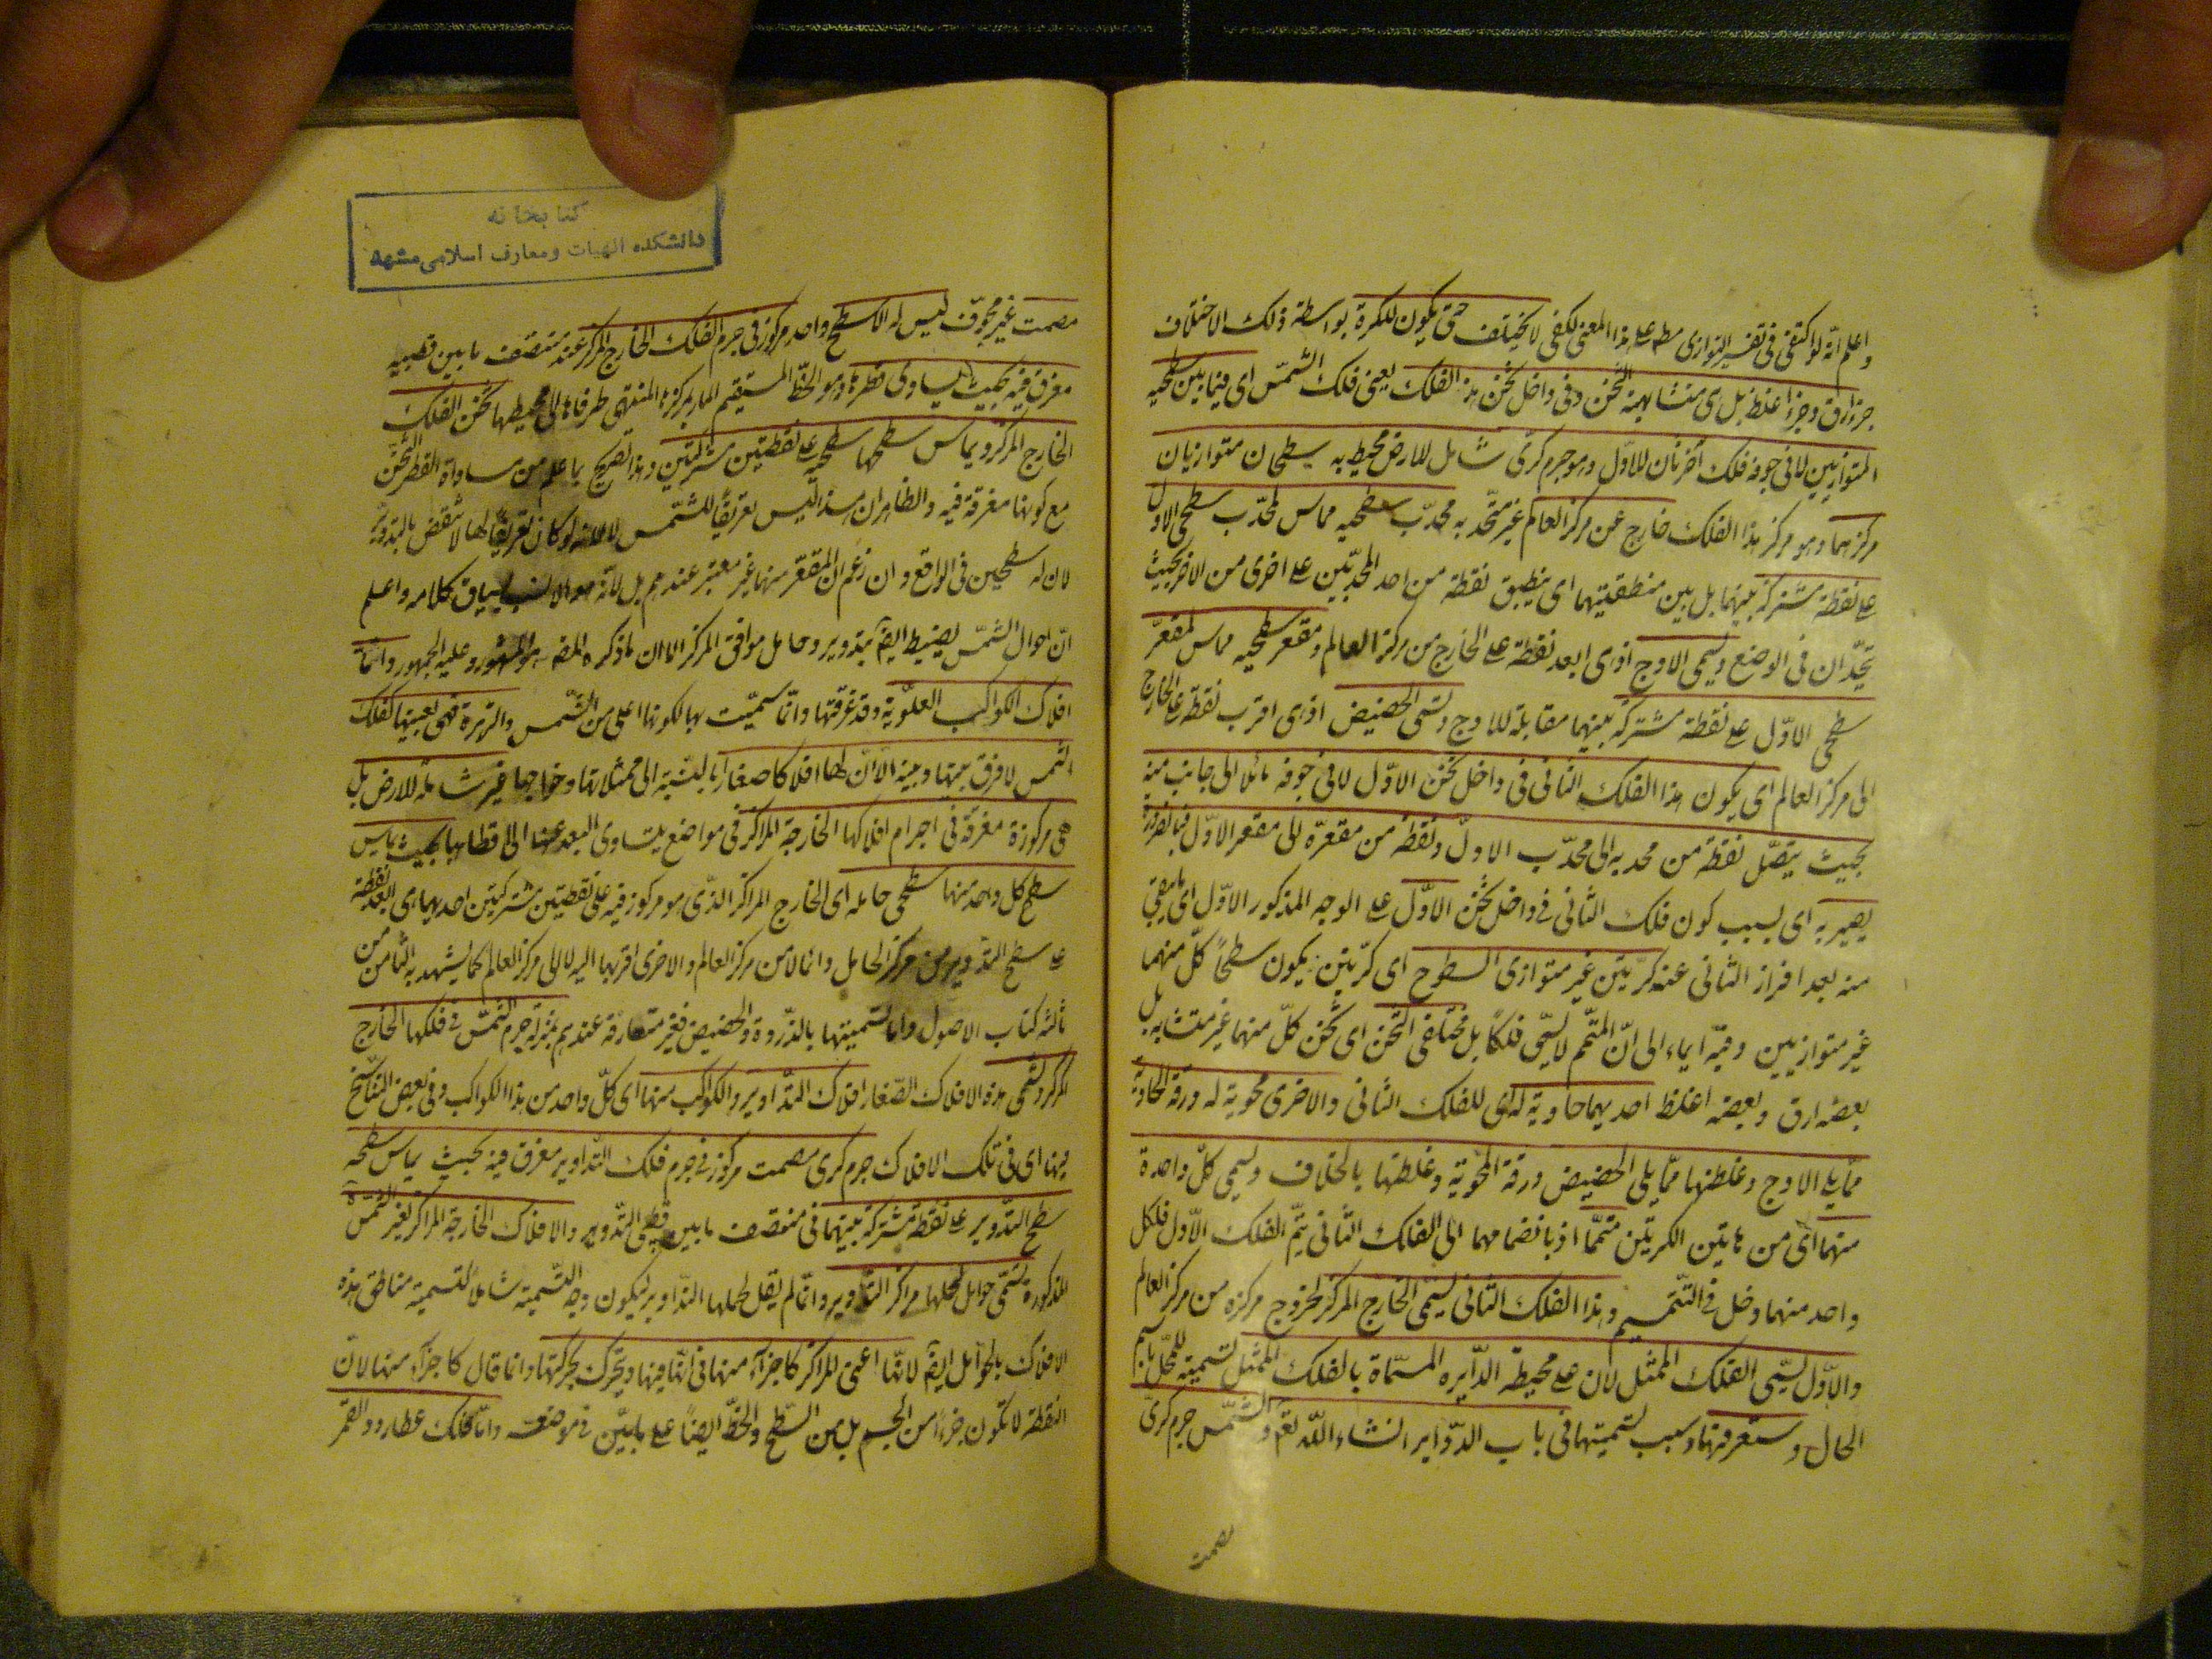 واعلم انّه لو اكتفى فى تفسير التوازى مطم على هذا المعنى لكفى لا يختلف حتى يكون للكرة بواسطة ذلك الاختلاف
جزءا ارق وجزءا اغلظ بل هى متشابهة الثخن وفى داخل ثخن هذا الفلك يعنى فلك الشمّس اى فيما بين سطحيه
المتوازيين لا فى جوفه فلك آخر ثان للاوّل وهو جرم كرىّ شامل للارض محيط به سطحان متوازيان
مركزهما وهو مركز هذا الفلك خارج عن مركز العالم غير متّحد به محدّب سطحيه مماس لمحدّب سطحى الاول
على نقطة مشتركة بينهما بل بين منطقتيهما اى ينطبق نقطة من احد المحدبّين على اخرى من الاخر بحيث
تتحّدان فى الوضع ويسمى الاوج اذ هى ابعد نقطة على الخارج من مركز العالم ومقعر سطحيه مماس لمقعرّ
سطحى الاوّل على نقطة مشتركة بينهما مقابلة للاوج وتسمى الحضيض اذ هى اقرب نقطة على الخارج
الى مركز العالم اى يكون هذا الفلك الثانى فى داخل ثخن الاوّل لا فى جوفه مائلا الى جانب منه
بحيث يتصّل نقطة من محدبه الى محدّب الاولّ ونقطة من مقعرّه الى مقعر الاوّل فبالضرورة
يصير به اى بسبب كون فلك الثانى فى داخل ثخن الاوّل على الوجه المذكور الاوّل اى ما بقى
منه بعد افراز الثانى عنه كرّيتّن غير متوازى السطوح اى كرّيتن يكون سطحاً كلّ منهما
غير متوازيين وفيّه ايماء الى انّ المتّمم لا يسّمى فلكاً بل مختلفى الثخن اى ثخن كلّ منهما غير متشابه بل
بعضه ارق وبعضه اغلظ احديهما حاوية له اى للفلك الثانى والاخرى محوية له ورقة الحاوية
ممّا يلى الاوج وغلظها ممّا يلى الحضيض ورقة المحّوية وغلظها بالخلاف ويسمى كلّ واحدة
منهما اى من هاتين الكريّتن متممّا اذ بانضمامهما الى الفلك الثّانى يتمّ الفلك الاّول فلكل
واحد منهما دخل فى التتّميم وهذا الفلك الثانى يسمى الخارج المركز لخروج مركزه من مركز العالم
والاوّل يسمّى الفلك الممثل لان على محيطه الدّايره المسمّاة بالفلك الممّثل تسمية للمحّل باسم
الحال وستعرفها وسبب تسميتها فى باب الدوّاير انشاء اللّه تعم والشمّس جرم كرىّ
مصمت
كتابخانه
دانشكده الهيات ومعارف اسلامى مشهد
مصمت غير مجوّف ليس له الا سطح واحد مركوز فى جرم الفلك الخارج المركز عند منتصف ما بين قطبيه
مغرق فيه بحيث يساوى قطرها وهو الخطّ المستقيم المار بمركزها المنتهى طرفاه الى محيطها ثخن الفلك
الخارج المركز ويماس سطحها سطحيه على نقطتين مشتركتين وهذا تصريح بما علم من مساواة القطر الثخن
مع كونها مغرقة فيه والظاهر ان هذا ليس تعريفًا للشمّس لا لانه لو كان تعريفًا لها لانتقض بالتدوير
لان له سطحين فى الواقع وان زعم ان المقعّر منها غير معتبر عندهم بل لانّه هو الانسب لسياق كلامه واعلم
انّ احوال الشمّس يضيط ايضًا بتدوير وحامل موافق المركز الا ان ما ذكره المصم هو المشهور وعليه الجمهور وامّا
افلاك الكواكب العلّوية وقد عرفتها وانّما سميّت بها لكونها اعلى من الشمّس والزهرة فهى بعينها كفلك
الشمس لا فرق بينها وبينه الا انّ لها افلاكا صغارًا بالنسّبة الى ممثلاتها وخوارجها غير شاملة للارض بل
هى مركوزة مغرقة فى اجرام افلاكها الخارجة المراكز فى مواضع يتساوى البعد عنها الى اقطابها بحيث يماس
سطح كل واحد منها سطحى حامله اى الخارج المراكز الذّى هو مركوز فيه على نقطتين مشتركتين احديهما هى ابعد نقطة
على سطح التدّوير من مركز الحامل وانّما لا من مركز العالم والاخرى اقربها اليه لا الى مركز العالم كما يشهد به الثامن من
ثالثه كتاب الاصول وامّا تسميتها بالذرّوة والحضيض فغير متعارفة عندهم بمنزلة جرم الشمّس فى فلكها الخارج
المركز وتسمى هذه الافلاك الصّغار افلاك التدّاوير والكواكب منها اى كلّ واحد من هذا الكواكب وفى بعض النسّخ
فيها اى فى تلك الافلاك جرم كرى مصمت مركوز فى جرم فلك التدّاوير مغرق فيه بحيث يماس سطحه
سطح التدّوير على نقطة مشتركة بينهما فى منتصف ما بين قطبى التدّوير والافلاك الخارجة المراكز لغير الشّمس
المذكورة تسمّى حوامل لحملها مراكز التدّاوير وانّما لم يقل لحملها التدّاوير ليكون وجه التسّمية شاملاً لتسمية مناطق هذه
الافلاك بالحوّامل ايضًا لانّها اعنى المراكز كاجزآء منها فى انّها فيها ويتحرّك بحركتها وانّما قال كاجزآء منها لان
النقطة لا تكون جزءاً من الجسم بل من السطّح والخطّ ايضًا على ما بيّن فى موضعه وامّا فلك عطارد والقمر